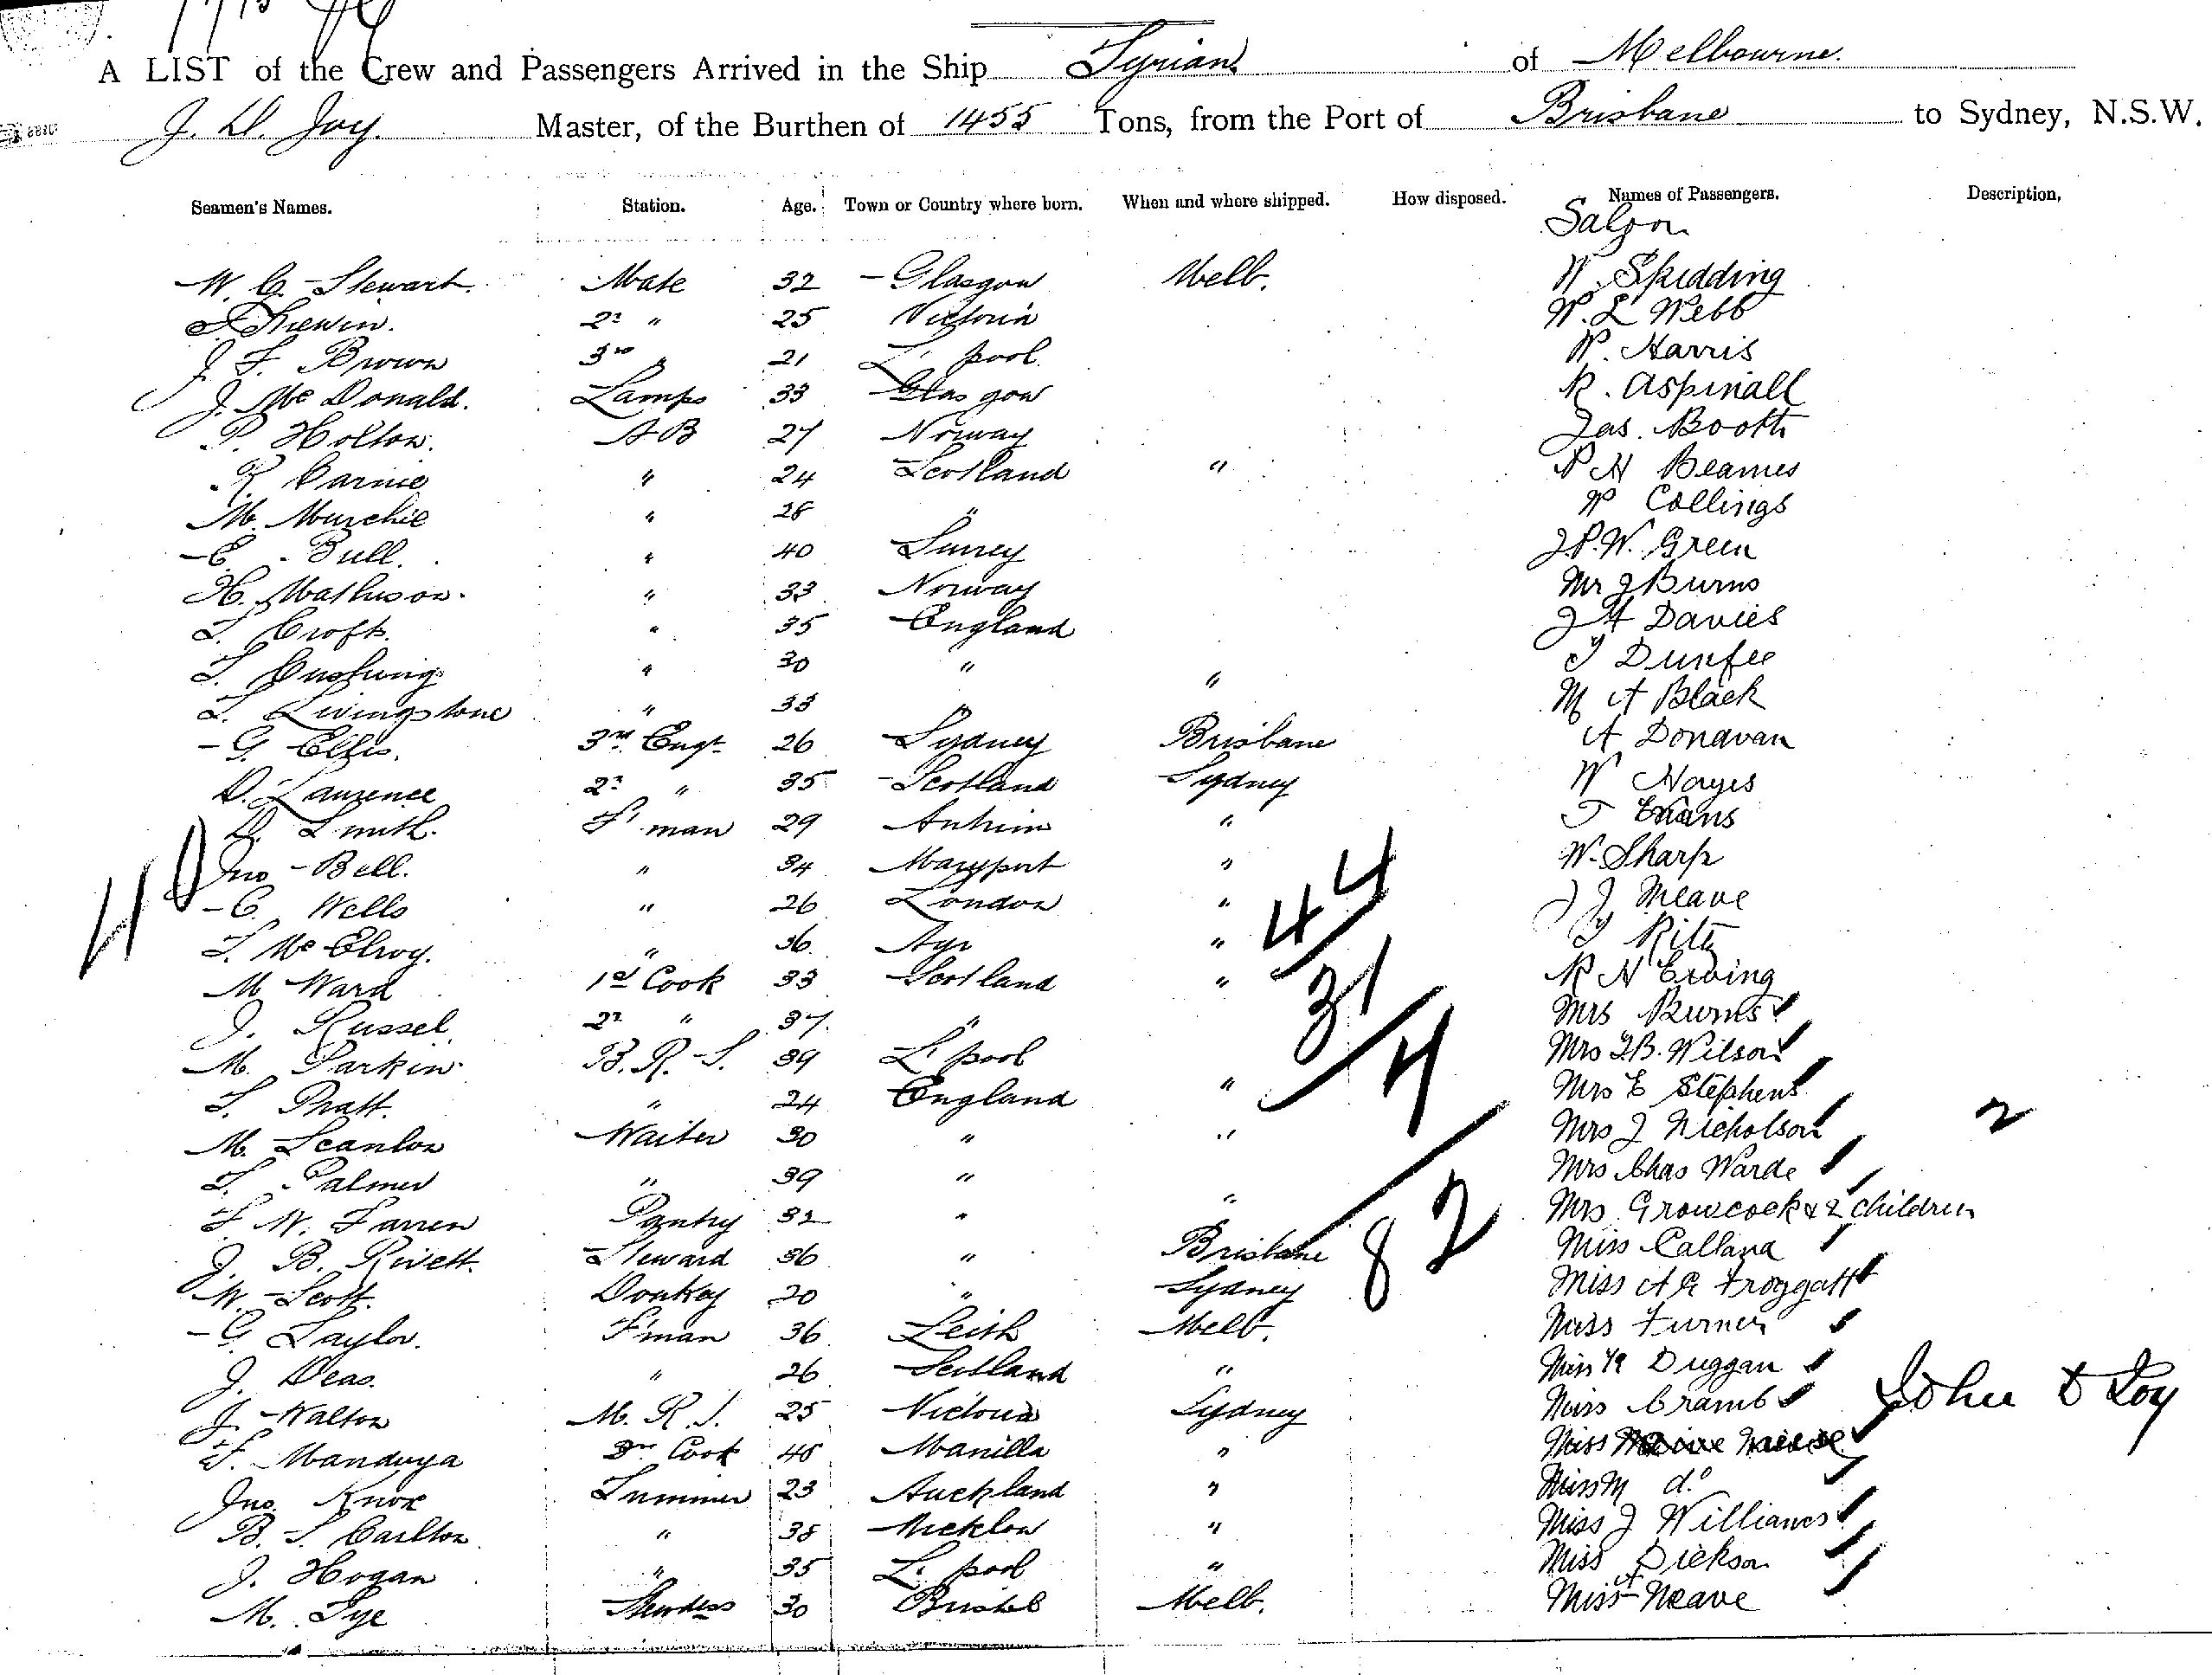 A LIST of the Crew and Passengers Arrived in the Ship Tyrian of Melbourne.
J. D. Joy. Master, of the Burthen of 1455 Tons, from the Port of Brisbane to Sydney, N.S.W.
Seamen's Names. Station. Age. Town or Country where born. When and where shipped. How disposed. Names of Passengers. Description,
Saloon
W. G. Stewart. Mate 32 Glasgow Melb. W. Skidding
2nd " 25 Victoria W. L Webb
J. F. Brown 3rd " 21 L'pool W. Harris
J. McDonald. Lamps 33 Glasgow R. Aspinall
P. Holton. AB 27 Norway Jas. Booth
R. Carnie " 24 Scotland " P H Beames
M. Murchie " 28 " W Collings
E. Bull. " 40 Surrey J.P.W. Green
H. Mathison. " 33 Norway Mr J Burns
T. Croft. " 35 England J H Davies
T. Cushing " 30 " " T Dunfee
T. Livingstone " 33 " M A Black
G. Ellis. 3rd Engr 26 Sydney Brisbane A Donavan
D. Laurence 2nd " 35 Scotland Sydney W Hayes
D. Smith. F'man 29 Antrim " T Evans
Jno Bell. " 34 Maryport " W. Sharp
C. Wells " 26 London " J J Meave
T. McElroy. " 36 Ayr " Ritz
M Ward 1st Cook 33 Scotland " R H Erving
J. Russel 2nd " 37 " Mrs Burns
M. Parkin B. R. S. 39 L'pool Mrs J.B. Wilson
T. Pratt. " 24 England " Mrs E Stephens
M. Scanlon Waiter 30 " " Mrs J Nicholson 2
T. Palmer " 39 " Mrs Chas Warde
F. W. Farren Pantry 32 " " Mrs Growcock & 2 children
J. B. Rivett. Steward 36 " Brisbane Miss Calland
W. Scott. Donkey 20 " Sydney Miss A E Froggatt
G Taylor. F'man 36 Leith Melb. Miss Turner
J. Deas. " 26 Scotland " Miss Duggan
J. Walton M. R. S. 25 Victoria Sydney Miss Cramb John D Joy
F. Manduya 3rd Cook 48 Manilla " Miss
Jno. Knox Trimmer 23 Auckland " Miss M do
B. S. Carlton " 38 Wicklow " Miss J Williams
J. Hogan " 35 L'pool " Miss Dickson
M. Tye Stewdess 30 Bristol Melb. Miss Neave
40
44
31
4
82